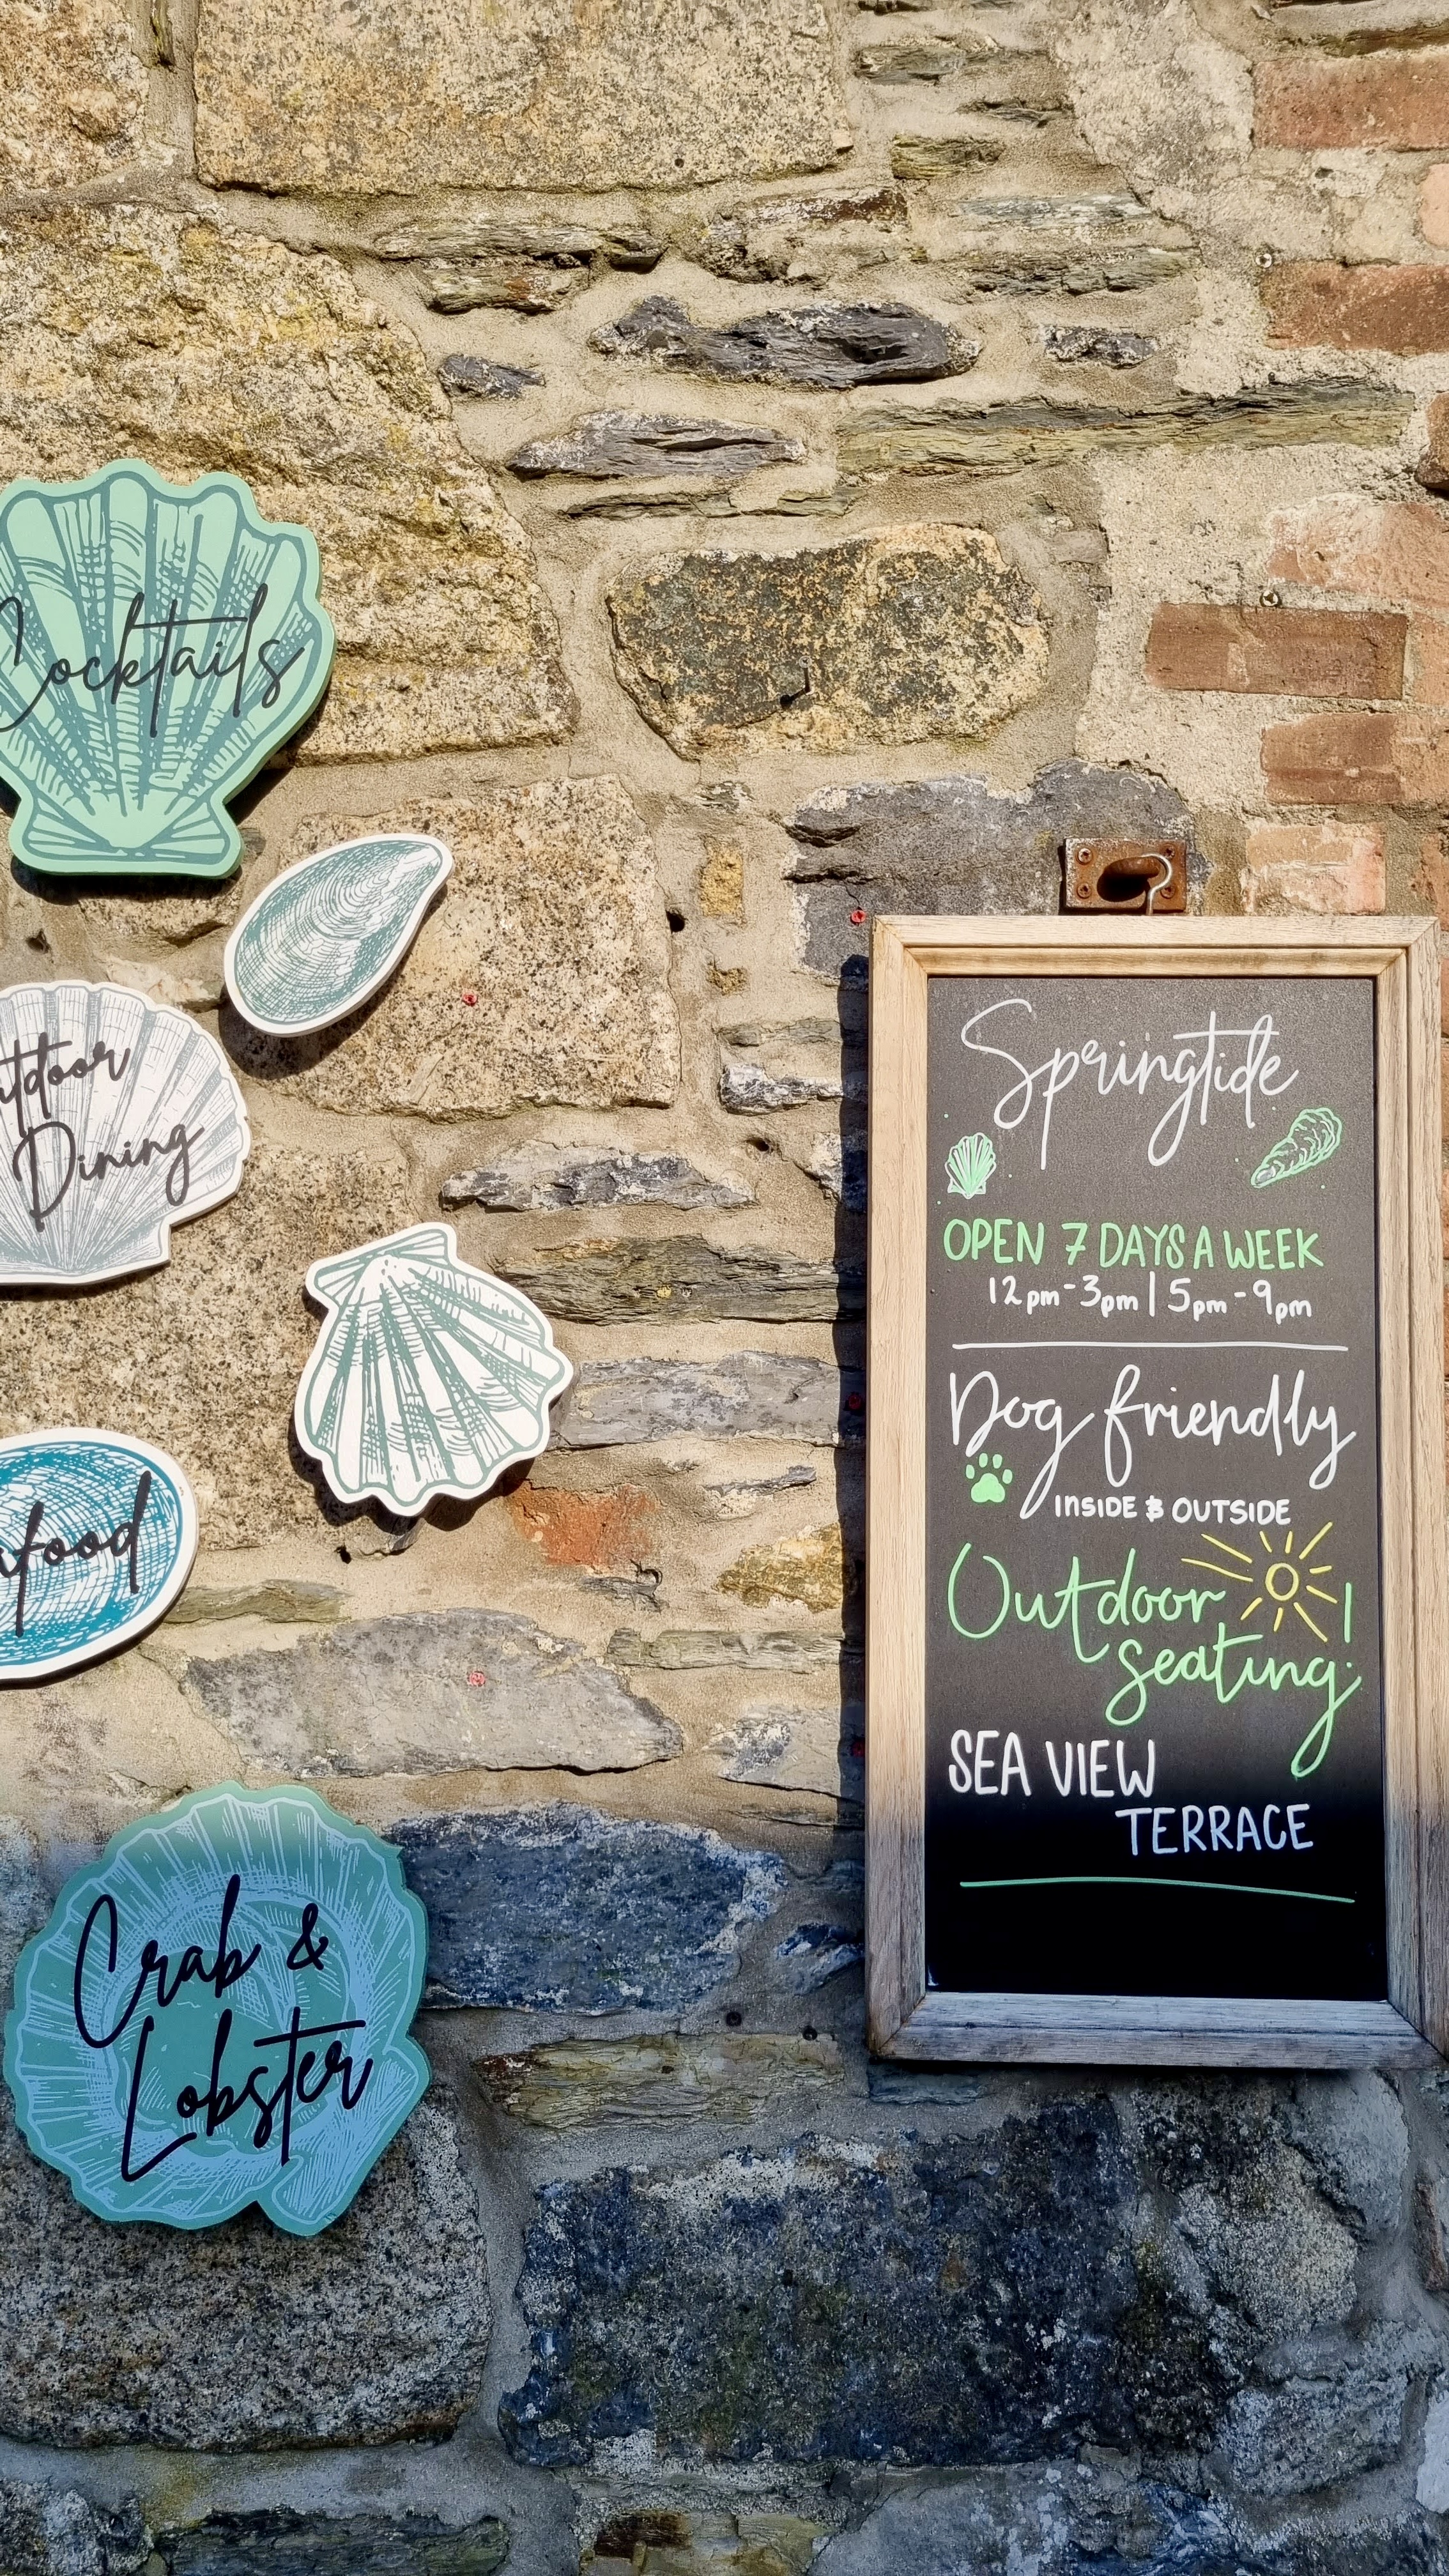 Cocktails
Outdoor
Dining
Seafood
Crab &
Lobster
Springtide
OPEN 7 DAYS A WEEK
12pm-3pm | 5pm-9pm
Dog friendly
INSIDE & OUTSIDE
Outdoor
seating!
SEA VIEW
TERRACE